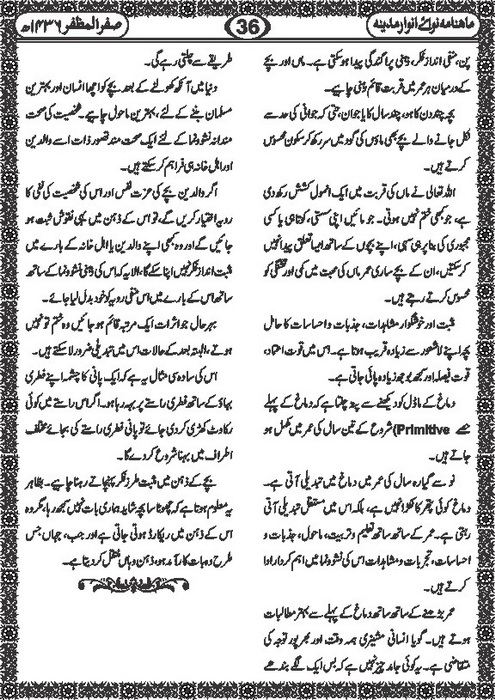 ماہنامہ نوائے انوار مدینہ
36
صفر المظفر ۱۴۳۶ھ
پن، منفی انداز فکر، ذہنی پراگندگی پیدا ہوسکتی ہے۔ ماں اور بچے
کے درمیان ہر عمر میں قربت قائم رہنی چاہیے۔
بچہ چند دن کا ہو، چند سال کا یا جوان، حتیٰ کہ جوانی کی حد سے
نکل جانے والے بچے بھی ماؤں کی گود میں سر رکھ کر سکون محسوس
کرتے ہیں۔
اللہ تعالی نے ماں کی قربت میں ایک انمول کشش رکھ دی
ہے، جو کبھی ختم نہیں ہوتی۔ جو مائیں اپنی سستی، کوتاہی یا کسی
مجبوری کی بنا پر ہی سہی، اپنے بچوں کے ساتھ ایسا تعلق پیدا نہیں
کرسکتیں، ان کے بچے ساری عمر ماں کی محبت میں کمی اور تشنگی کو
محسوس کرتے رہتے ہیں۔
مثبت اور خوشگوار مشاہدات، جذبات و احساسات کا حامل
بچہ اپنے لاشعور سے زیادہ قریب ہوتا ہے۔ اس میں قوت اعتماد،
قوت فیصلہ اور سمجھ بوجھ زیادہ پائی جاتی ہے۔
دماغ کے ماڈل کو دیکھنے سے پتہ چلتا ہے کہ دماغ کے پہلے
حصے Primitive) شروع کے تین سال کی عمر میں مکمل ہو
جاتے ہیں۔
نو سے گیارہ سال کی عمر میں دماغ میں تبدیلی آتی ہے۔
دماغ کوئی پتھر کا ٹکڑا نہیں ہے، بلکہ اس میں مستقل تبدیلی آتی
رہتی ہے۔ عمر کے ساتھ ساتھ تعلیم و تربیت، ماحول، جذبات و
احساسات، تجربات و مشاہدات اس کی نشوونما میں اہم کردار ادا
کرتے ہیں۔
عمر بڑھنے کے ساتھ ساتھ دماغ کے پہلے سے بہتر مطالبات
ہوتے ہیں۔ گویا انسانی مشینری ہمہ وقت اور بھرپور توجہ کی
متقاضی ہے۔ یہ کوئی جامد چیز نہیں ہے کہ بس ایک لگے بندھے
طریقے سے چلتی رہے گی۔
دنیا میں آنکھ کھولنے کے بعد بچے کو اچھا انسان اور بہترین
مسلمان بننے کے لئے، بہترین ماحول چاہیے۔ شخصیت کی صحت
مندانہ نشوونما کے لئے ایک صحت مند تصور ذات اسے والدین
اور اہل خانہ ہی فراہم کرسکتے ہیں۔
اگر والدین بچے کی عزت نفس اور اس کی شخصیت کی نفی کا
رویہ اختیار کریں گے، تو اس کے ذہن میں یہی نقوش ثبت ہو
جائیں گے اور وہ کبھی اپنے والدین یا اہل خانہ کے بارے میں
مثبت انداز فکر نہیں اپنا سکے گا، الا یہ کہ اس کی ذہنی نشوونما کے ساتھ
ساتھ اس کے بارے میں اس منفی رویہ کو خود بدل لیا جائے۔
بہرحال جو اثرات ایک مرتبہ قائم ہو جائیں وہ ختم تو نہیں
ہوتے، البتہ بعد کے حالات اس میں تبدیلی ضرور لا سکتے ہیں۔
اس کی سادہ سی مثال یہ ہے کہ ایک پانی کا چشمہ اپنے فطری
بہاؤ کے ساتھ فطری راستے پر بہہ رہا ہو۔ اگر اس راستے میں کوئی
رکاوٹ کھڑی کردی جائے تو پانی فطری راستے کی بجائے مختلف
اطراف میں بہنا شروع کردے گا۔
بچے کے ذہن میں مثبت طرز فکر پہنچاتے رہنا چاہیے۔ بظاہر
یہ معلوم ہوتا ہے کہ چھوٹا سا بچہ شاید ہماری بات نہیں سمجھ رہا، مگر وہ
اس کے ذہن میں ریکارڈ ہوتی جاتی ہے اور جب، جہاں جس
طرح وہ بات کارآمد ہو، ذہن وہاں منتقل کردیتا ہے۔